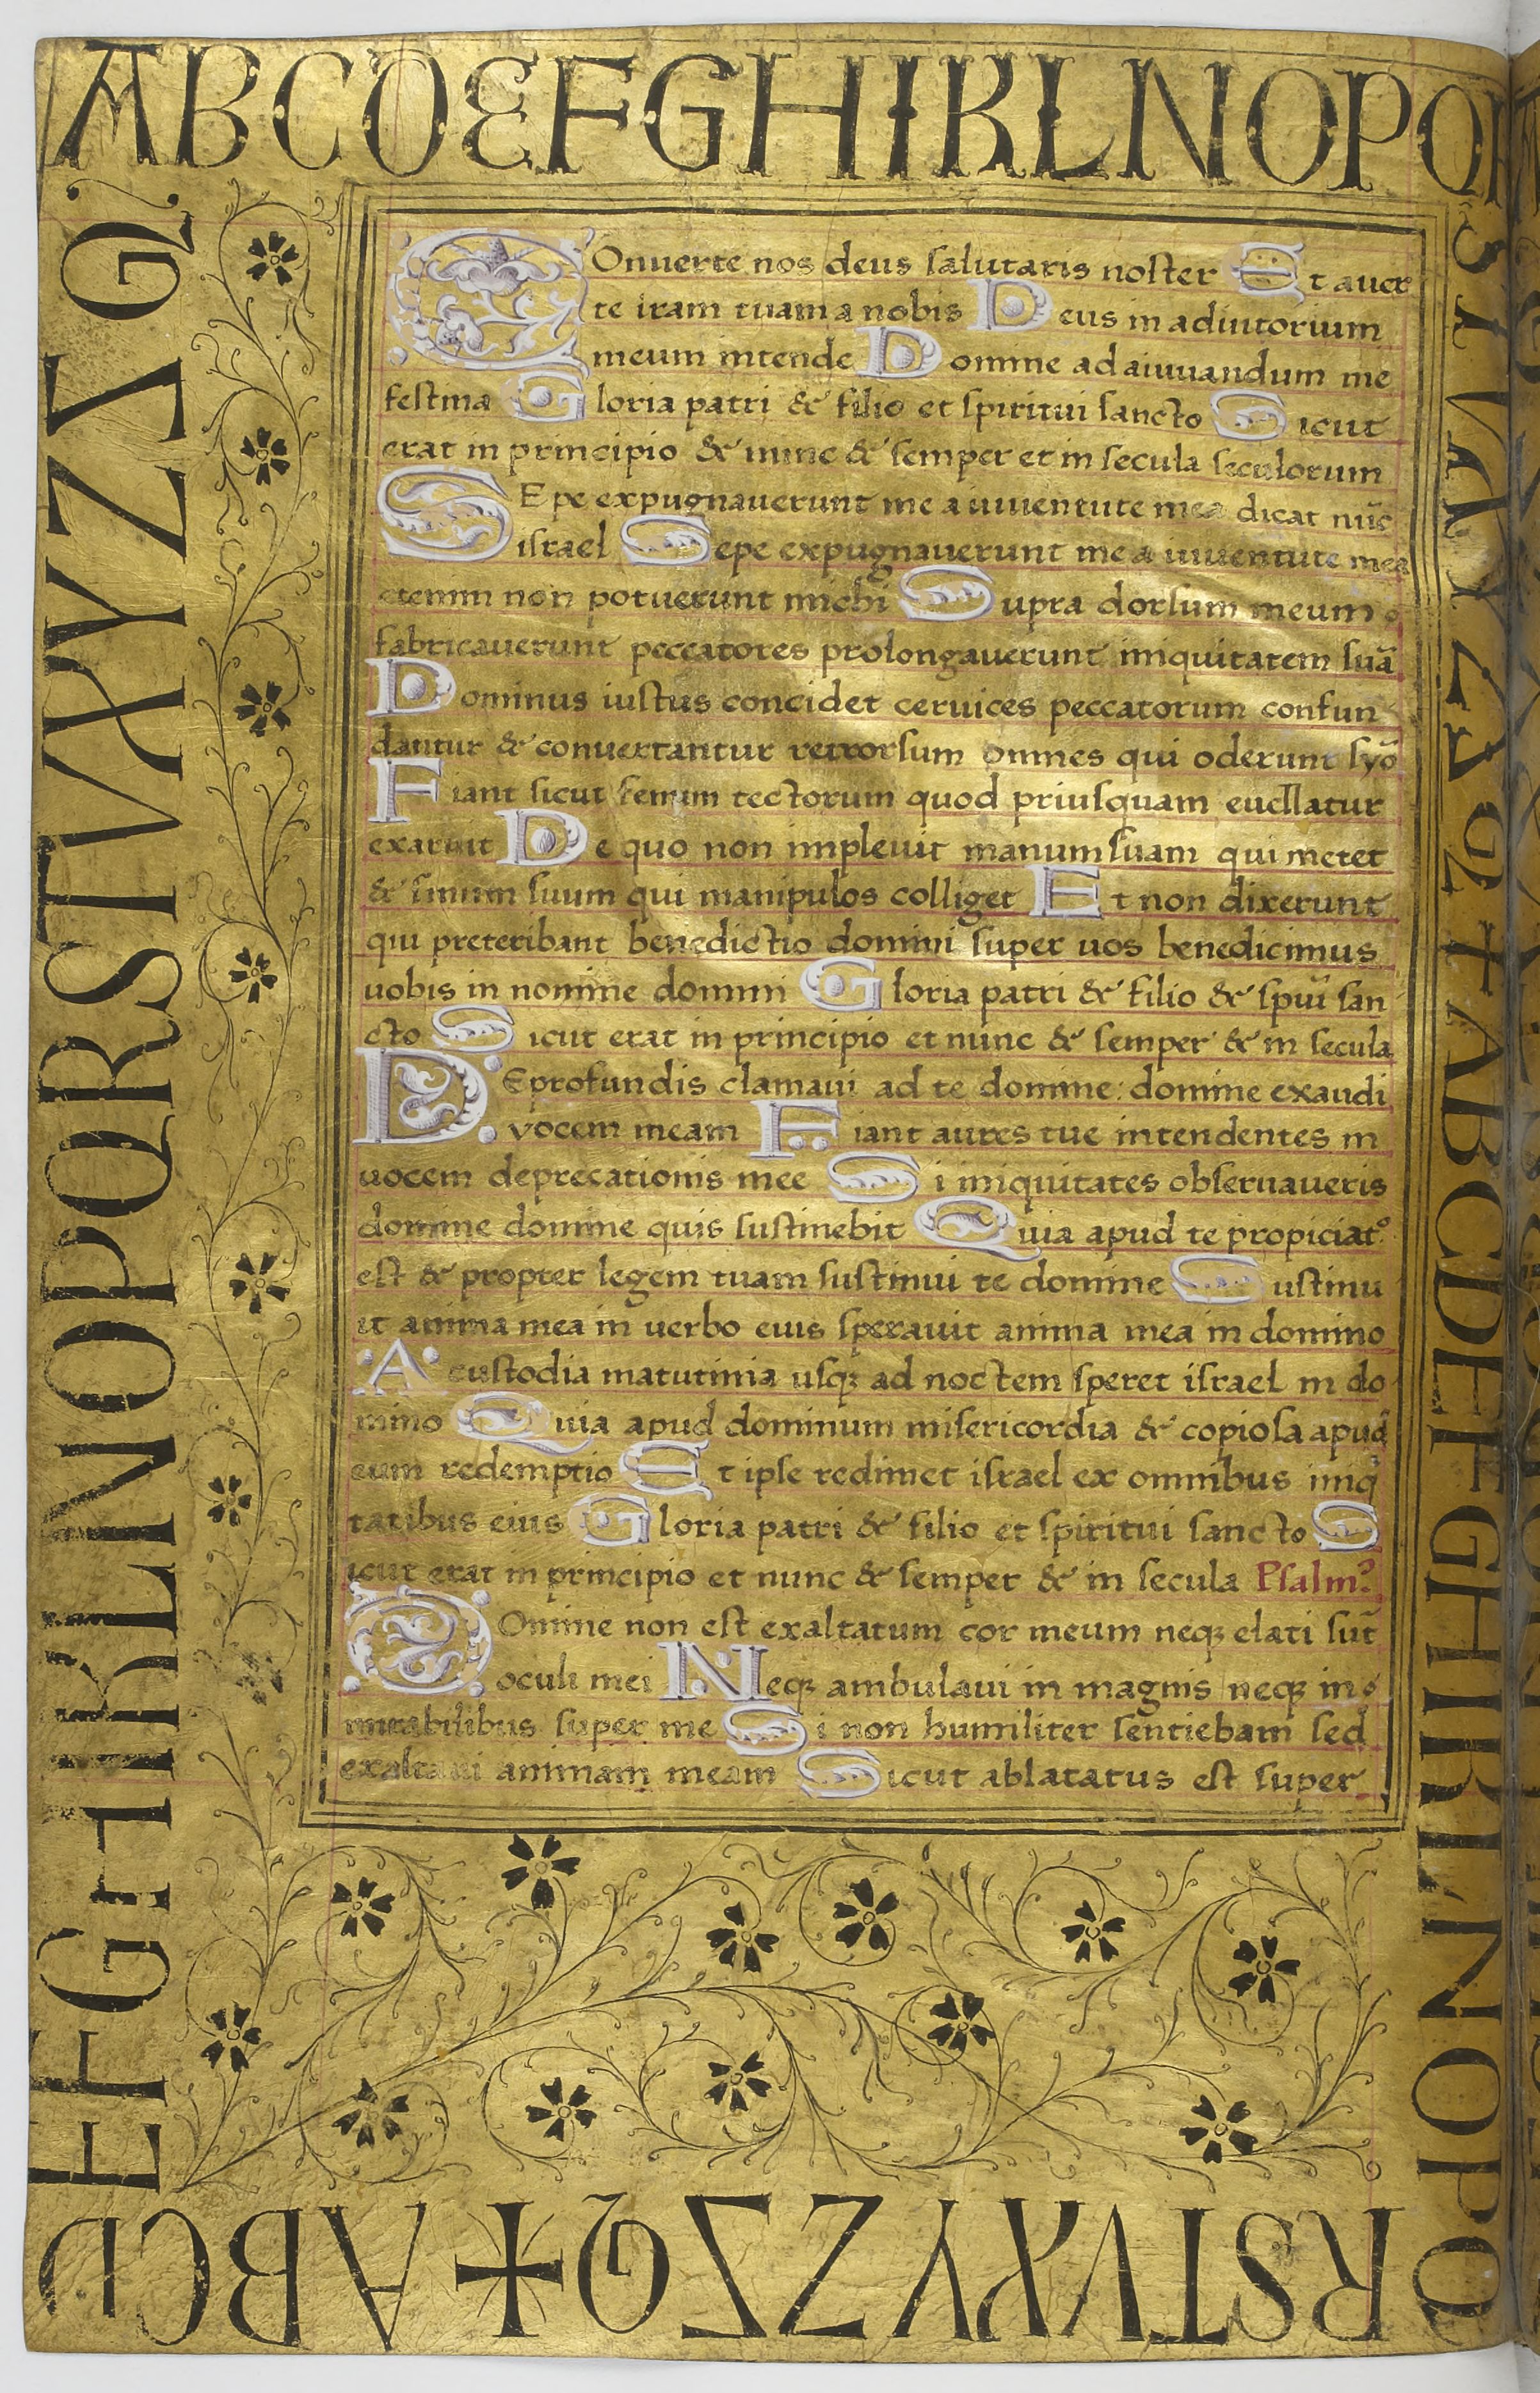 ABCDEFGHIKLNOPQR
STVXYZ
ABCDEFGHIKLNOPQ
RSTVXYZ
ABCD
EFGHIKLNOPQRSTVXYZ
COnuerte nos deus salutaris noster Et auer
te iram tuam a nobis Deus in adiutorium
meum intende Domine ad aiuuandum me
festina Gloria patri & filio et spiritui sancto Sicut
erat in principio & nunc & semper et in secula seculorum
SEpe expugnauerunt me a iuuentute mea dicat nūc
israel Sepe expugnauerunt me a iuuentute mea
etenim non potuerunt michi Supra dorsum meum
fabricauerunt peccatores prolongauerunt iniquitatem suā
Dominus iustus concidet ceruices peccatorum confun
dantur & conuertantur retrorsum omnes qui oderunt syō
Fiant sicut fenum tectorum quod priusquam euellatur
exaruit De quo non impleuit manum suam qui metet
& sinum suum qui manipulos colliget Et non dixerunt
qui preteribant benedictio domini super uos benedicimus
uobis in nomine domini Gloria patri & filio & spūi san
cto Sicut erat in principio et nunc & semper & in secula
DE profundis clamaui ad te domine: domine exaudi
vocem meam Fiant aures tue intendentes in
uocem deprecationis mee Si iniquitates obseruaueris
domine domine quis sustinebit Quia apud te propiciatꝰ
est & propter legem tuam sustinui te domine Sustinu
it anima mea in uerbo eius sperauit anima mea in domino
A custodia matutinia usqꝫ ad noctem speret israel in do
mino Quia apud dominum misericordia & copiosa apud
eum redemptio Et ipse redimet israel ex omnibus iniq
tatibus eius Gloria patri & filio et spiritui sancto S
icut erat in principio et nunc & semper & in secula Psalmꝰ
DOmine non est exaltatum cor meum neqꝫ elati sūt
oculi mei Neqꝫ ambulaui in magnis neqꝫ in
mirabilibus super me Si non humiliter sentiebam sed
exaltaui animam meam Sicut ablatatus est super